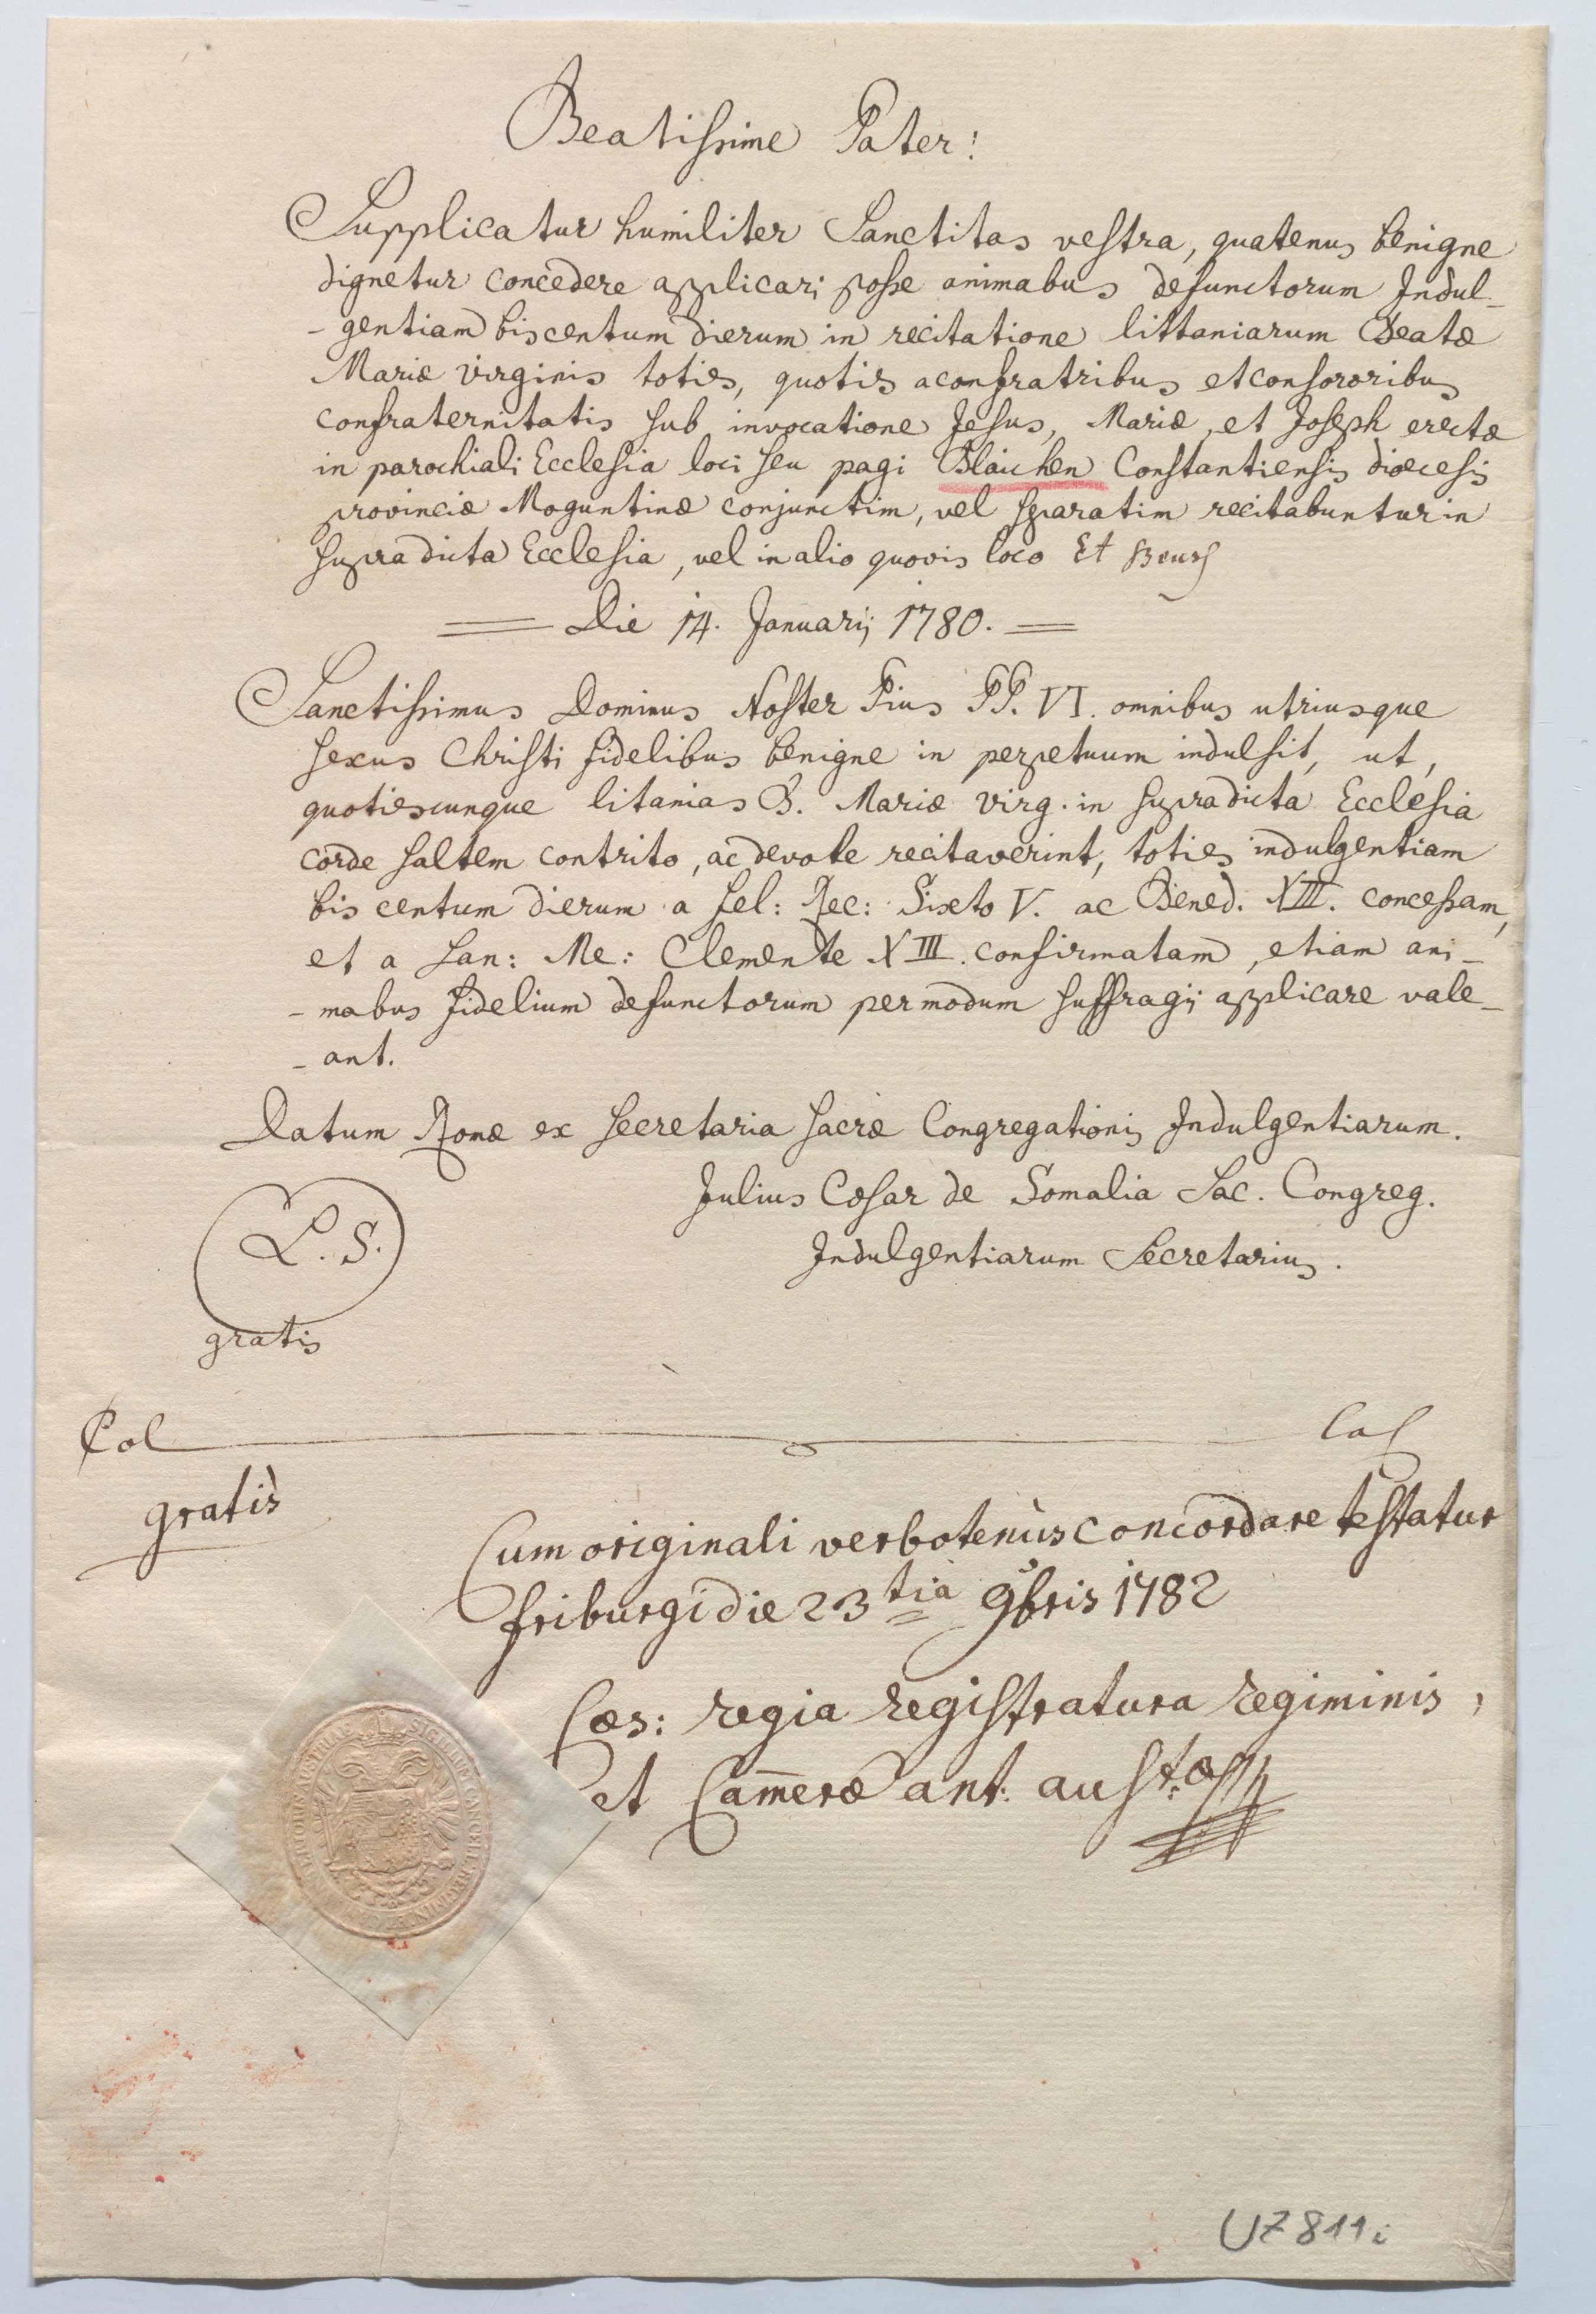 Beatissime Pater!
Supplicatur humiliter Sanctitas vestra, quatenus benigne
dignetur concedere applicari posse animabus defunctorum Indul-
-gentiam bis centum dierum in recitatione littaniarum Beatæ
Mariæ virginis toties, quoties a confratribus et consororibus
confraternitatis sub invocatione Jesus, Mariæ, et Joseph erectæ
in parochiali Ecclesia loci seu pagi Blaichen Constantiensis diœcesis
provinciæ Moguntinæ conjunctim, vel separatim recitabuntur in
supradicta Ecclesia, vel in alio quovis loco Et
Die 14. Januarij 1780.
Sanctissimus Dominus Noster Pius PP. VI. omnibus utriusque
sexus Christi fidelibus benigne in perpetuum indulsit, ut,
quotiescunque litanias B. Mariæ virg. in supradicta Ecclesia
corde saltem contrito, ac devote recitaverint, toties indulgentiam
bis centum dierum a fel: Rec: Sixto V. ac Bened. XIII. concessam,
et a San: Me: Clemente XIII. confirmatam, etiam ani-
-mabus fidelium defunctorum per modum suffragij applicare vale-
-ant.
Datum Romæ ex secretaria sacræ Congregationis Indulgentiarum.
Julius Cæsar de Somalia Sac. Congreg.
Indulgentiarum Secretarius.
L. S.
gratis
Col
gratis
Cum originali verbotenùs concordare testatur
friburgi die 23tia 9bris 1782
Cæs: regia registratura regiminis,
et Cam̄eræ ant: aust:æ
UZ 811i